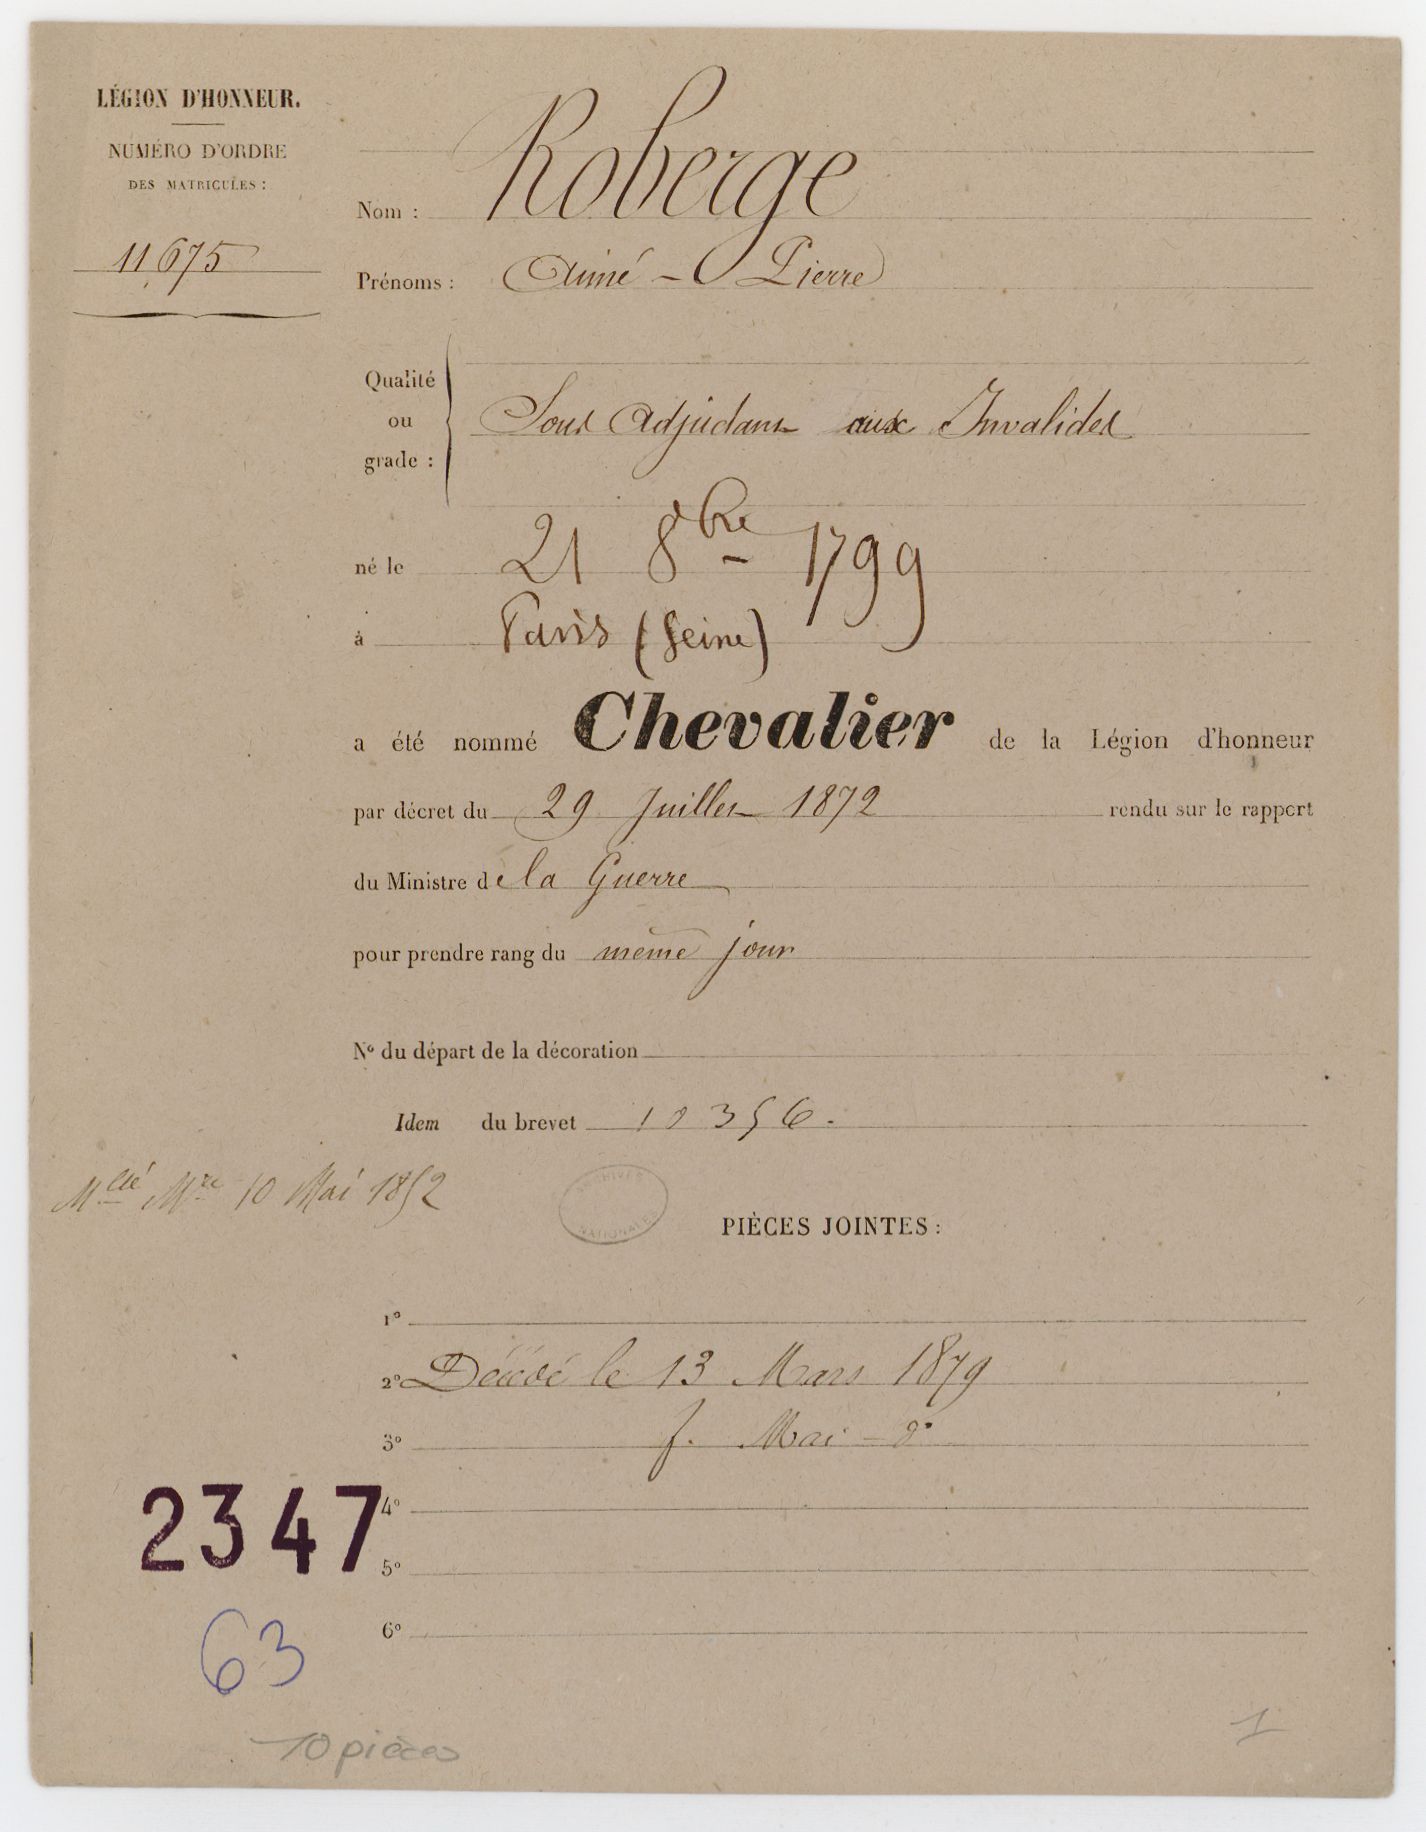 LÉGION D'HONNEUR.
NUMÉRO D'ORDRE
DES MATRICULES :
11675
Nom : Roberge
Prénoms : Aimé - Pierre
Qualité
ou
grade :
Sous Adjudant aux Invalides
né le 21 8bre 1799
à Paris (Seine)
a été nommé Chevalier de la Légion d'honneur
par décret du 29 Juillet 1872 rendu sur le rapport
du Ministre de la Guerre
pour prendre rang du même jour
N° du départ de la décoration
Idem du brevet 10356.
Mlle Mre 10 Mai 1852
ARCHIVES
NATIONALES
PIÈCES JOINTES :
1°
2° Décédé le 13 Mars 1879
3° f. Mai - d°
4°
5°
6°
2347
63
10 pièces
1